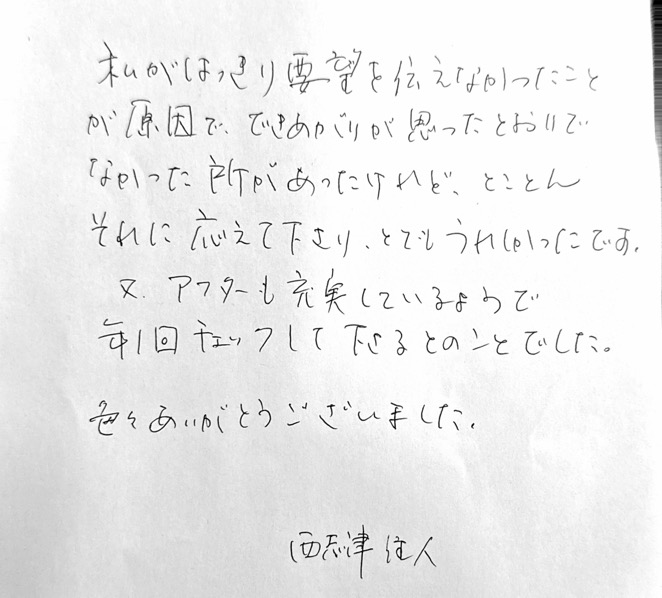 私がはっきり要望を伝えなかったこと
が原因で、できあがりが思ったとおりで
なかった所があったけれど、とことん
それに応えて下さり、とてもうれしかったです。
又、アフターも充実しているようで
年1回チェックして下さるとのことでした。
色々ありがとうございました。
西志津住人